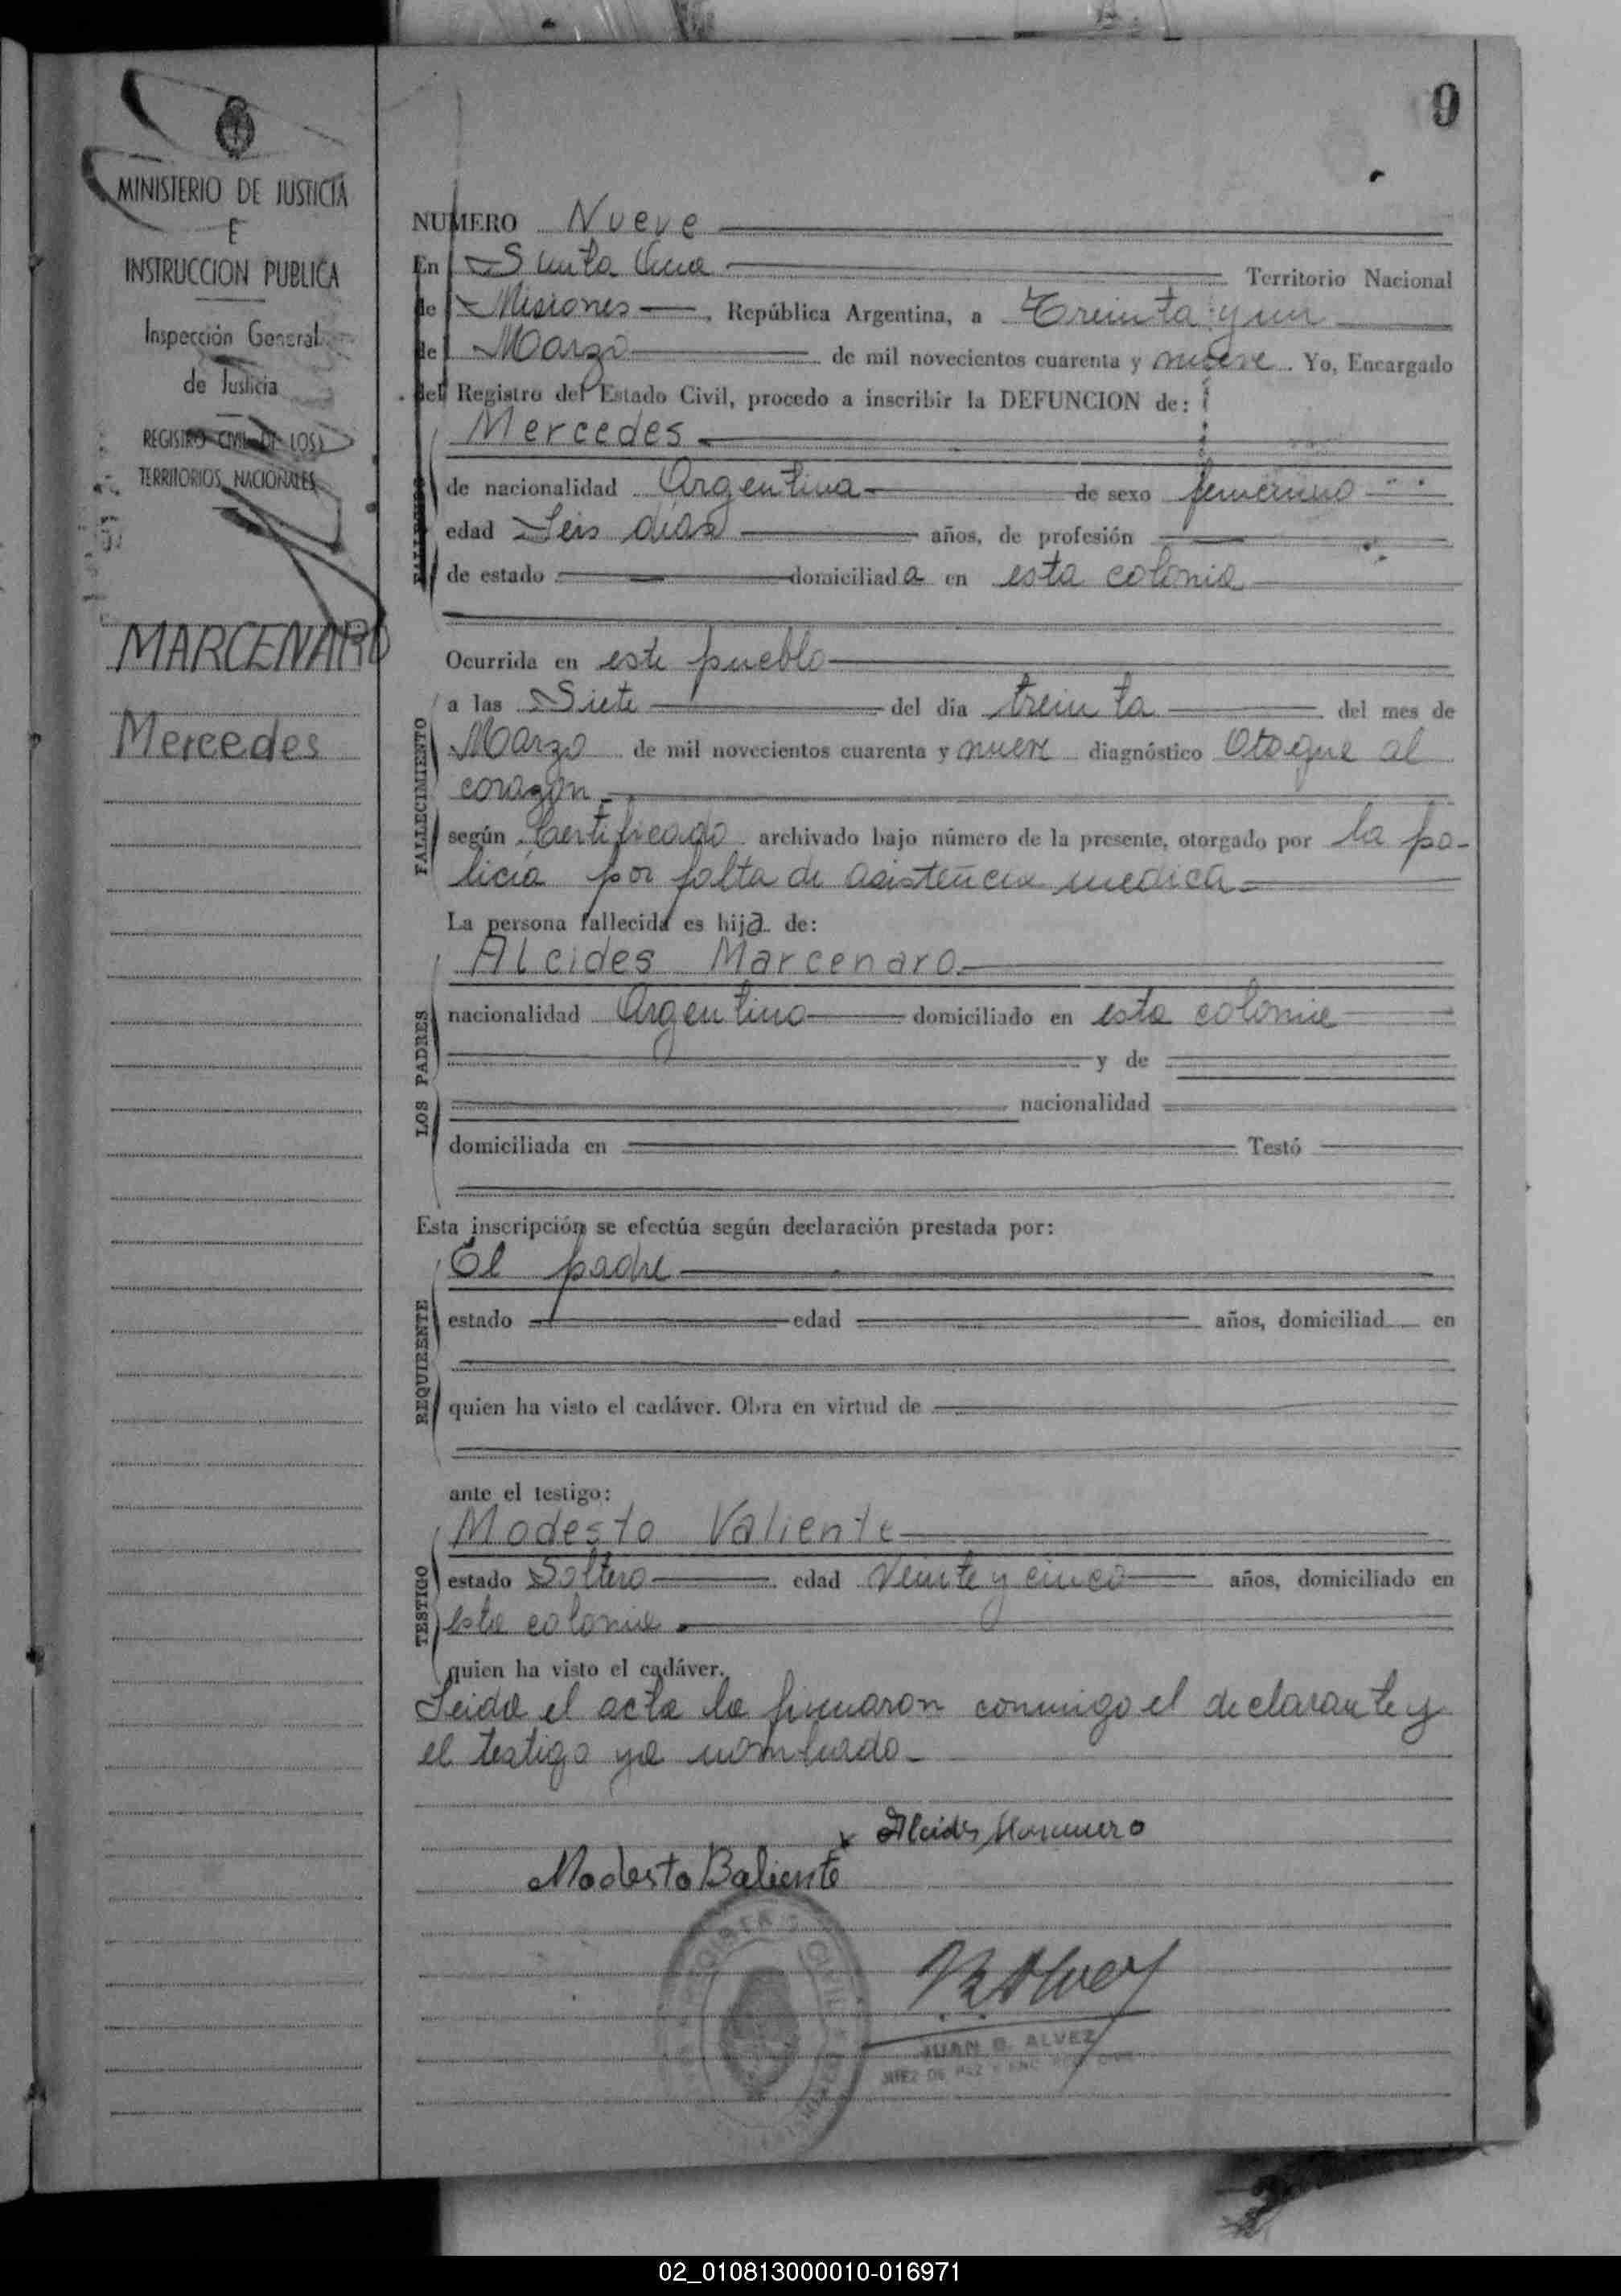 9
MINISTERIO DE JUSTICIA
E
INSTRUCCION PUBLICA
Inspección General
de Justicia
REGISTRO CIVIL DE LOS
TERRITORIOS NACIONALES
MARCENARO
Mercedes
NUMERO Nueve
En Santa Ana Territorio Nacional
de Misiones, República Argentina, a Treinta y un
de Marzo de mil novecientos cuarenta y nueve. Yo, Encargado
del Registro del Estado Civil, procedo a inscribir la DEFUNCION de:
Mercedes
de nacionalidad Argentina de sexo femenino
edad Seis días años, de profesión
de estado domiciliada en esta colonia
Ocurrida en este pueblo
FALLECIMIENTO
a las Siete del dia treinta del mes de
Marzo de mil novecientos cuarenta y nueve diagnóstico Ataque al
corazon
según Certificado archivado bajo número de la presente, otorgado por la po-
licia por falta de asistencia medica
La persona fallecida es hija de:
LOS PADRES
Alcides Marcenaro
nacionalidad Argentino domiciliado en esta colonia
y de
nacionalidad
domiciliada en Testó
Esta inscripción se efectúa según declaración prestada por:
REQUIRENTE
El padre
estado edad años, domiciliad en
quien ha visto el cadáver. Obra en virtud de
ante el testigo:
TESTIGO
Modesto Valiente
estado Soltero edad Veinte y cinco años, domiciliado en
esta colonia
quien ha visto el cadáver.
Leida el acta la firmaron conmigo el declarante y
el testigo ya nombrado
x Alcides Marcenaro
Modesto Baliente
JUAN B. ALVEZ
JUEZ DE PAZ
02_010813000010-016971